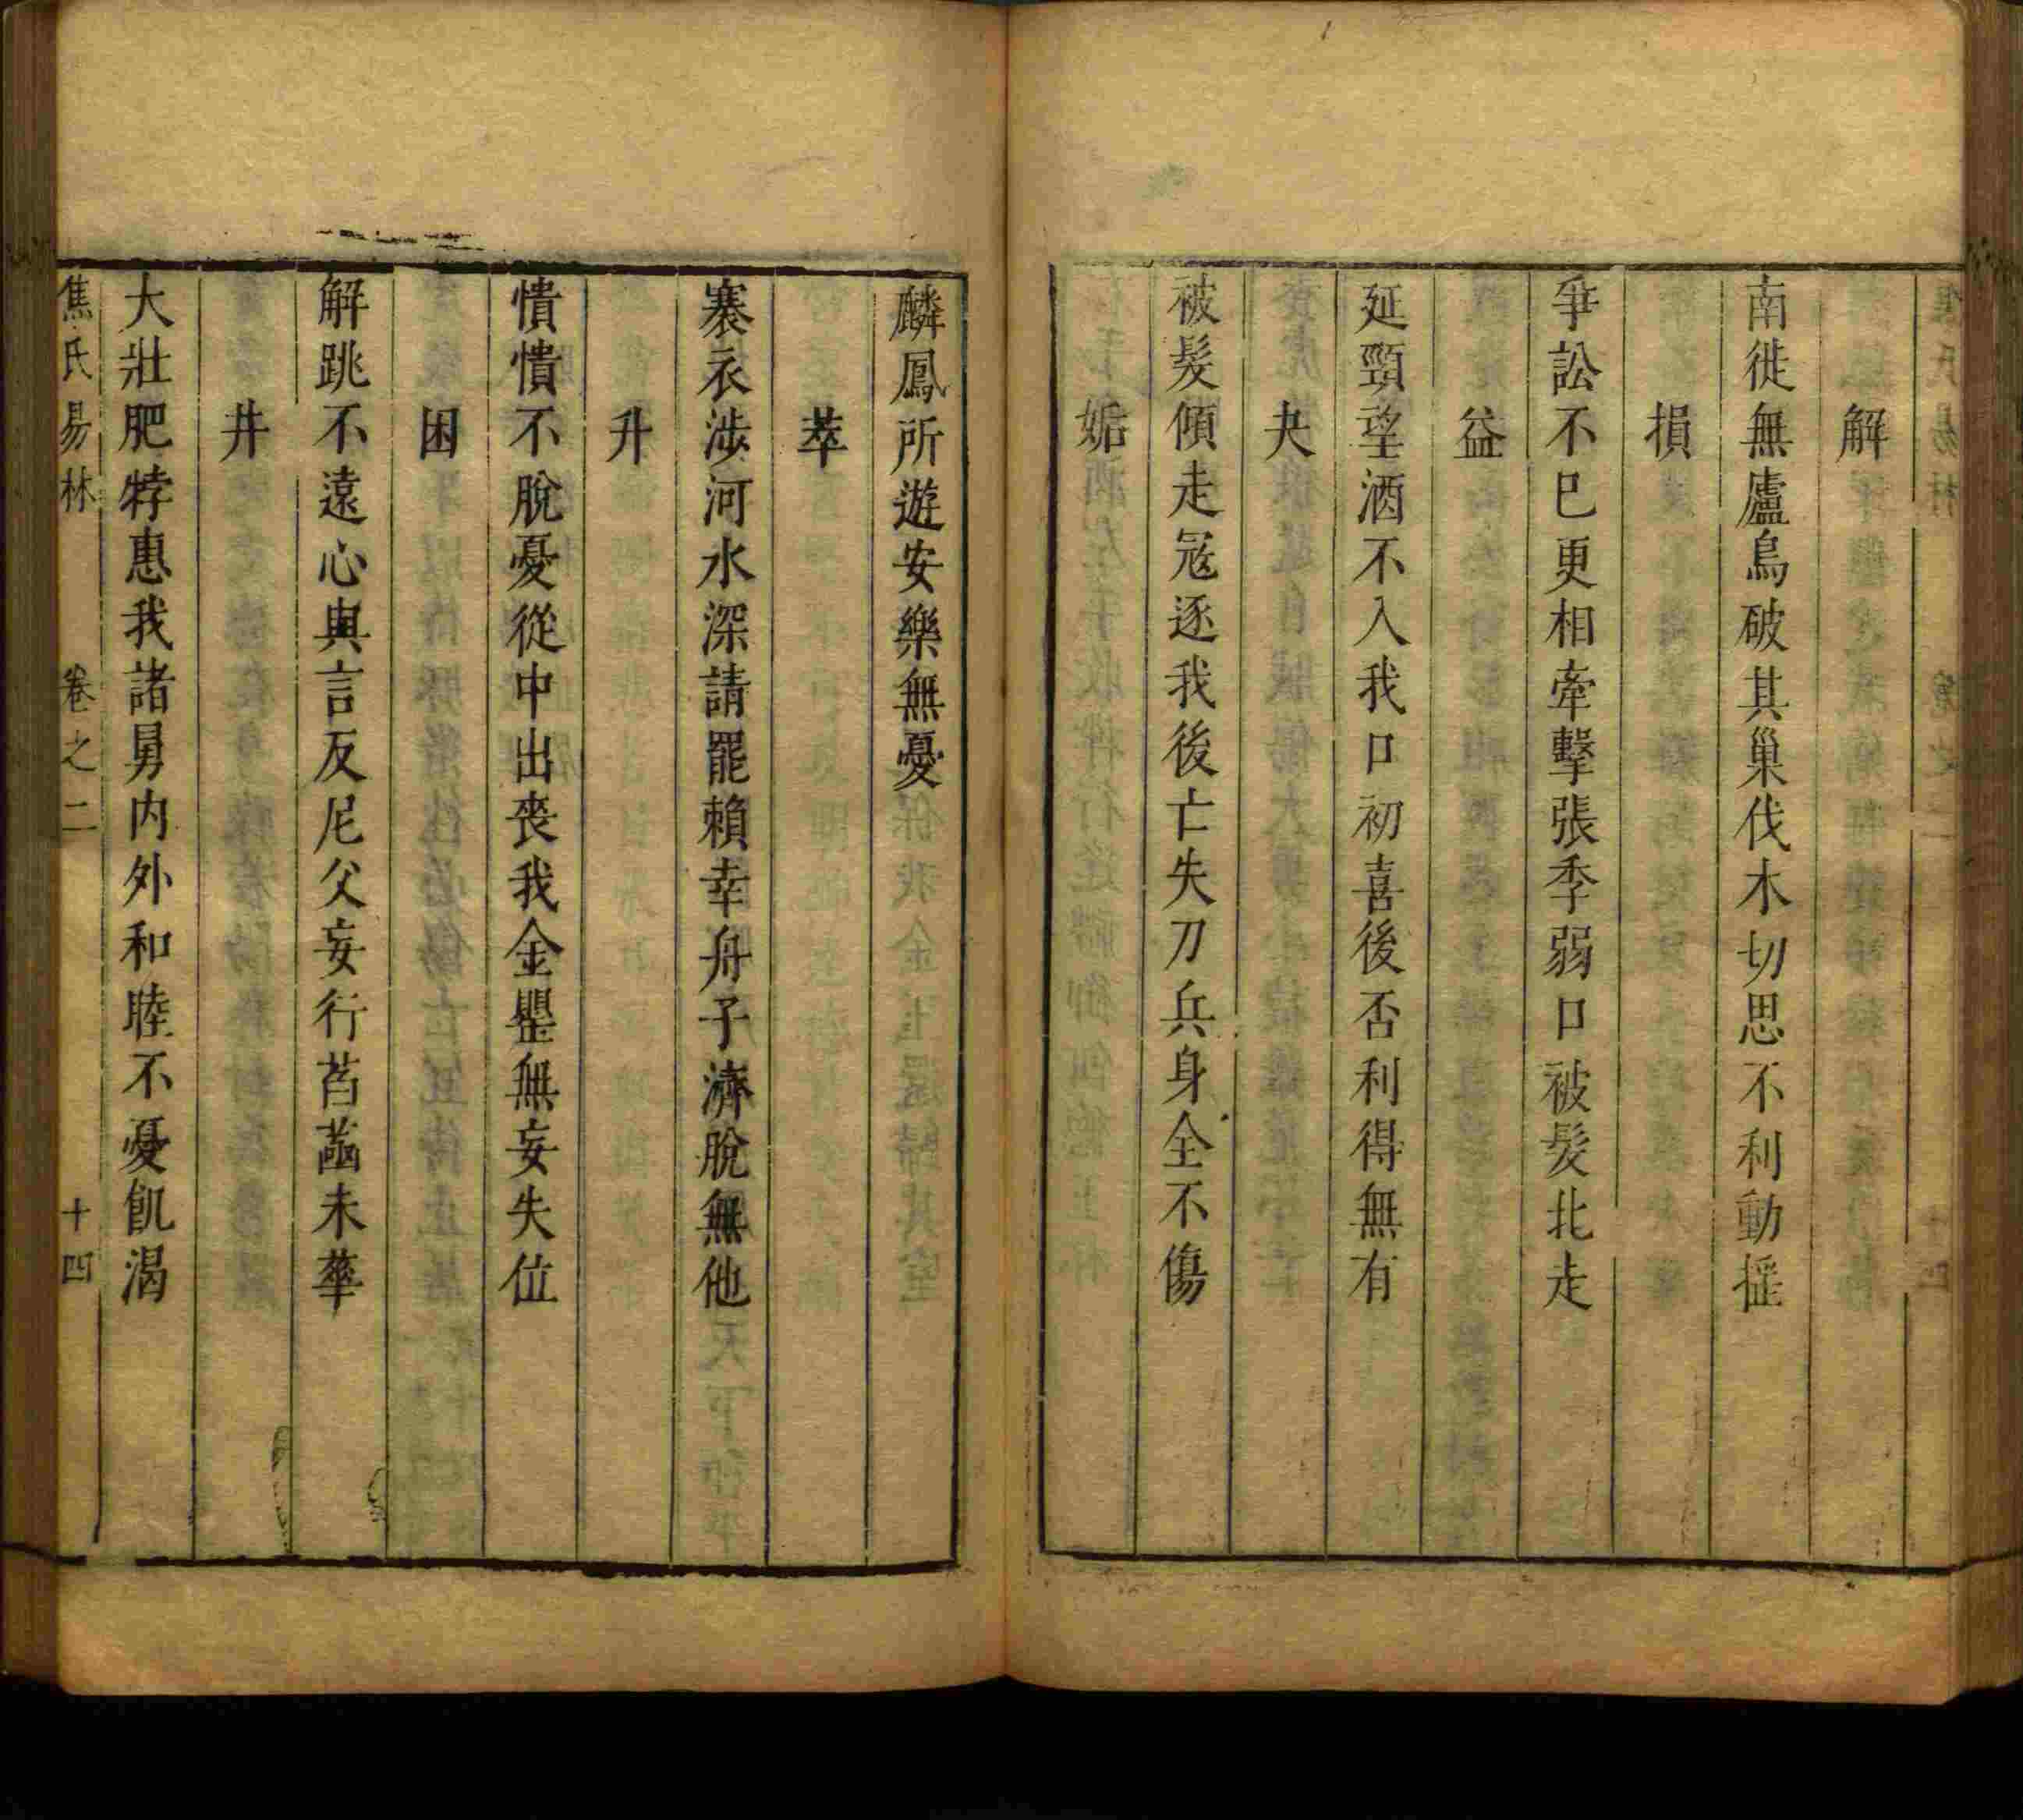 解
南徙無廬鳥破其巢伐木切思不利動搖
損
爭訟不已更相牽擊張季弱口被髮北走
益
延頸望酒不入我口初喜後否利得無有
夬
被髮傾走寇逐我後亡失刀兵身全不傷
姤
麟鳳所遊安樂無憂
萃
褰衣涉河水深請罷賴幸舟子濟脫無他
升
憒憒不脫憂從中出喪我金罌無妄失位
困
解跳不遠心與言反尼父妄行苕菡未華
井
大壯肥牸惠我諸舅内外和睦不憂飢渴
焦氏易林 卷之二 十四